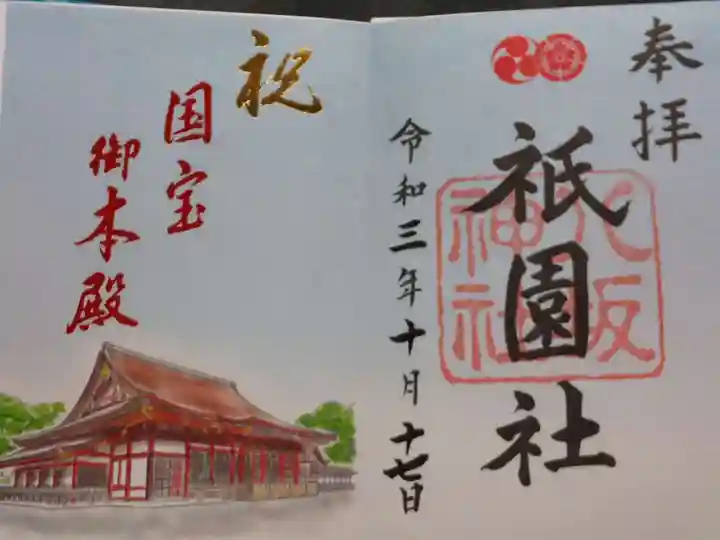 奉拝
祇園社
八坂
神社
令和三年十月十七日
祝
国宝
御本殿